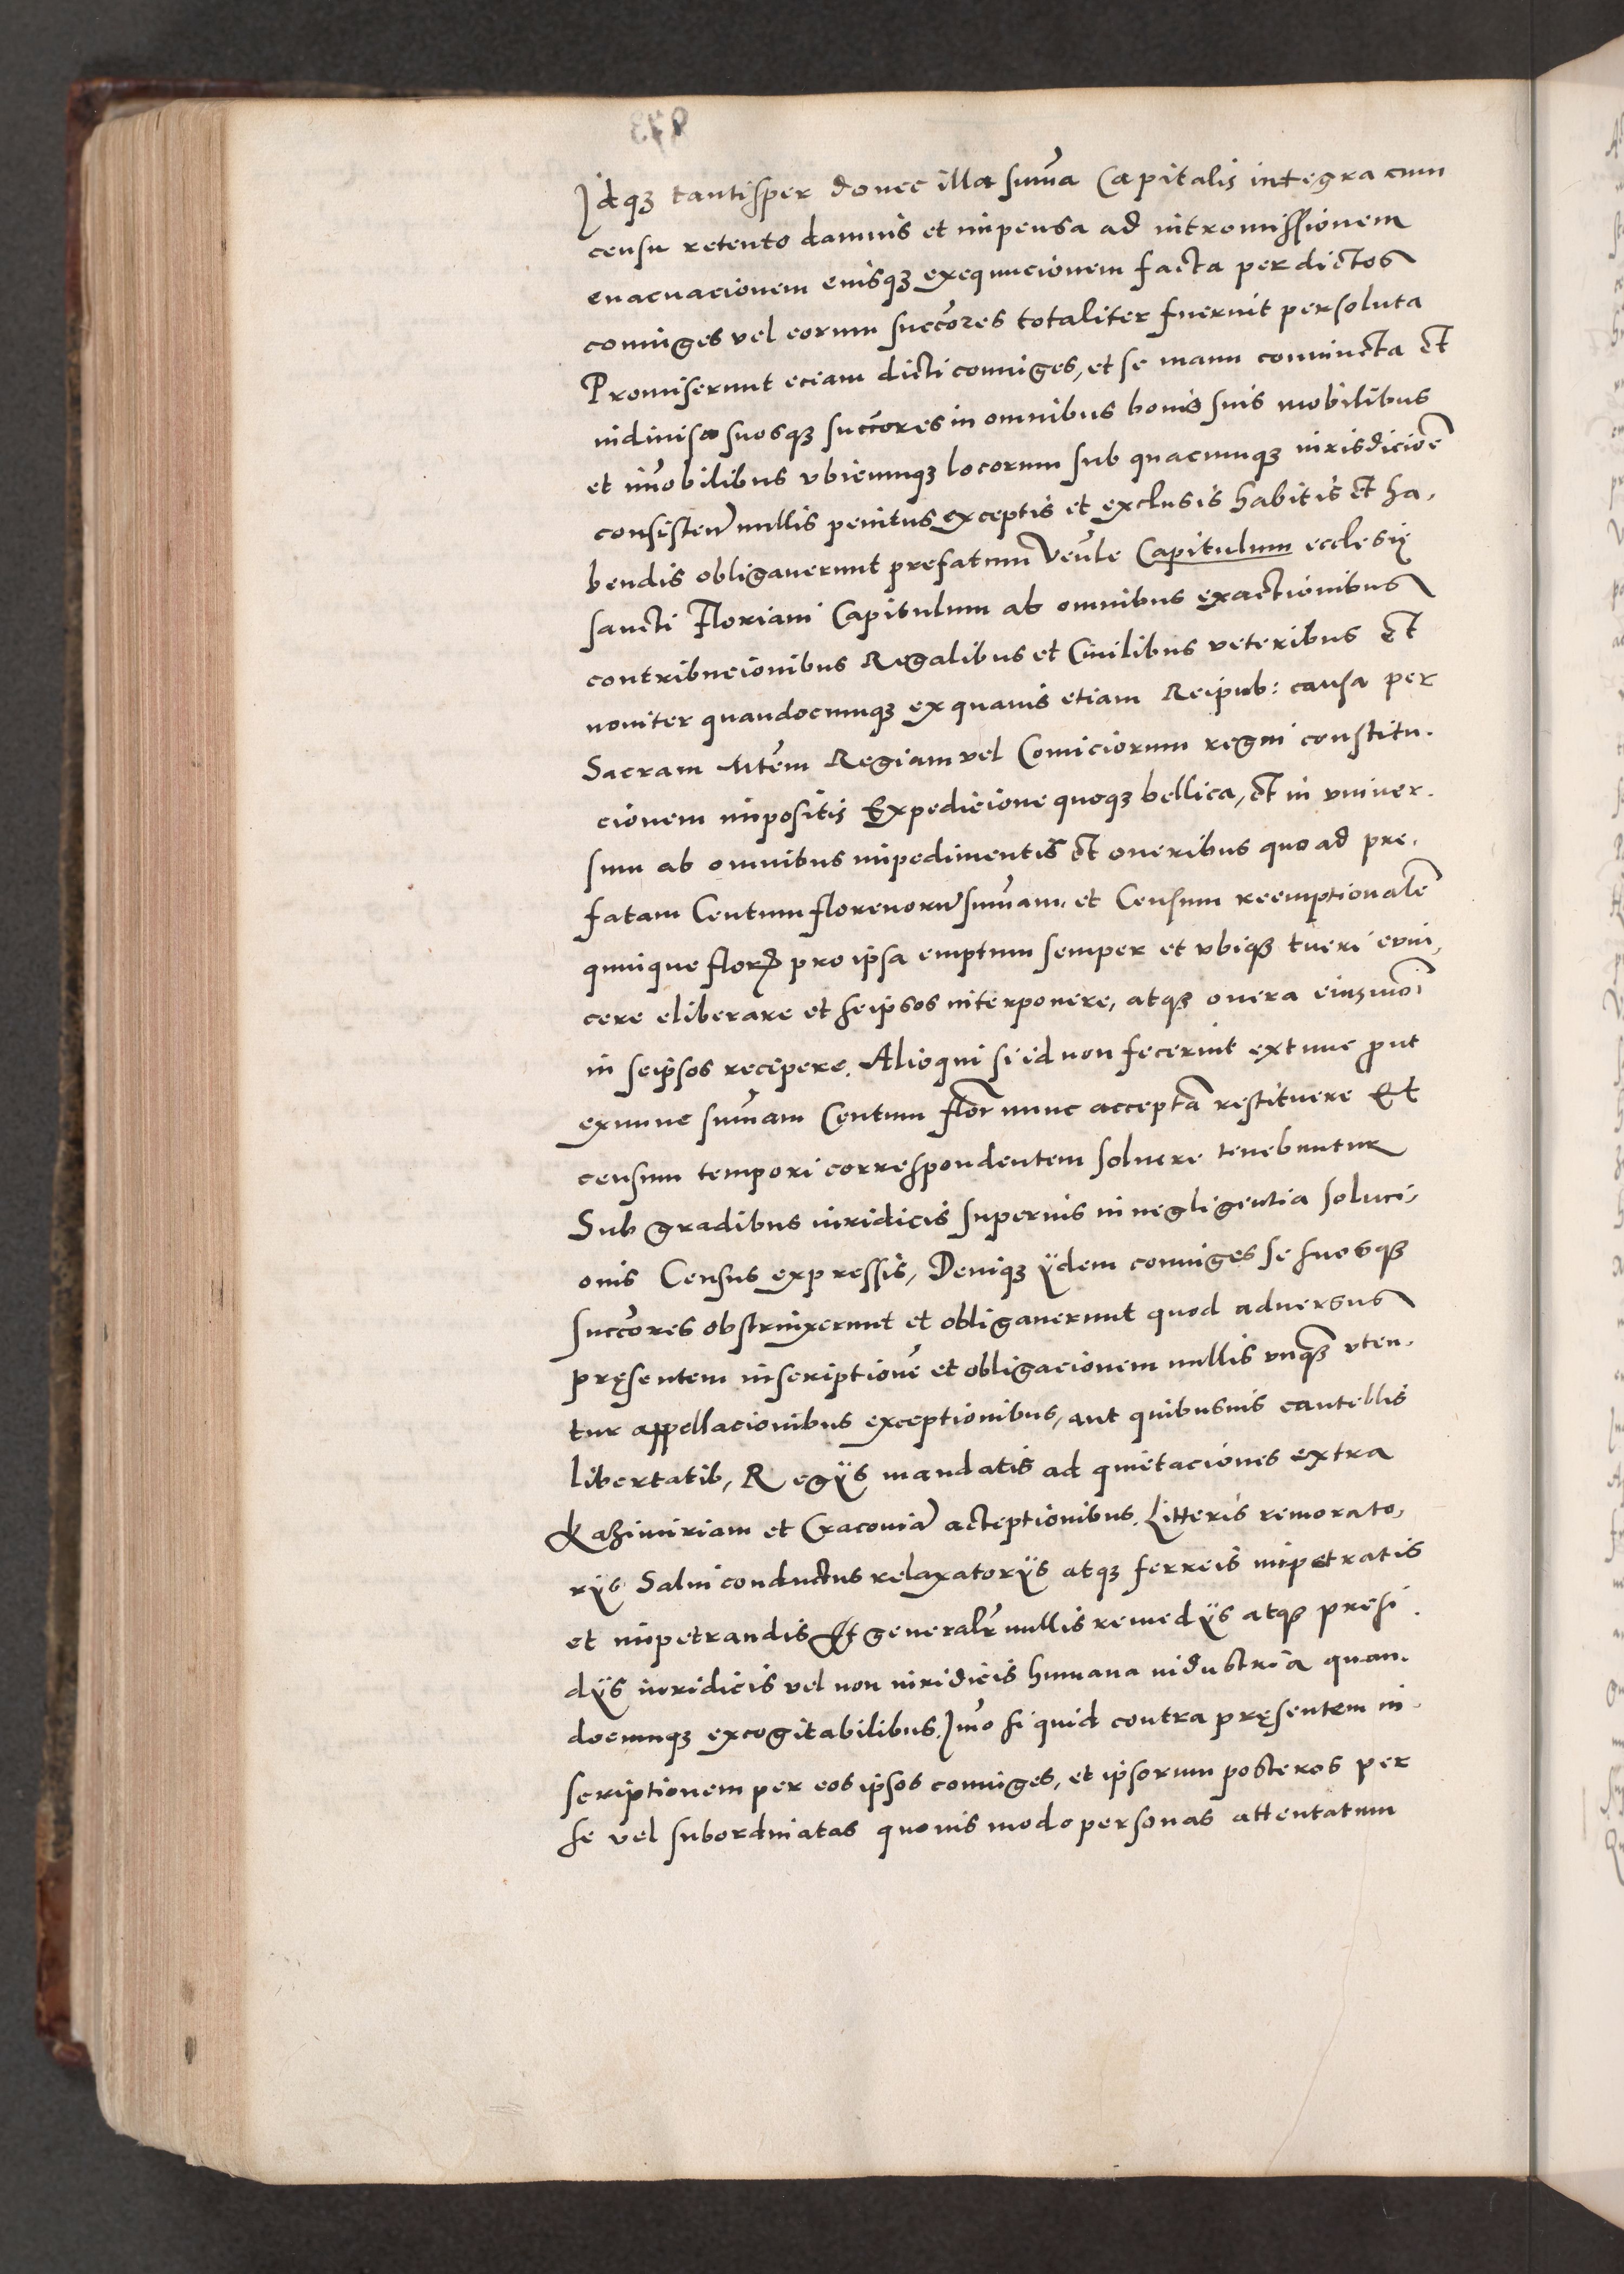 Idqʒ tantisper donec illa sum̃a Capitalis integra cum
censu retento damnis et impensa ad intromissionem
euacuacionem eiusqʒ exequucionem facta per dictos
coniuges vel eorum succõres totaliter fuerint persoluta
Promiserunt eciam dicti coniuges, et se manu coniuncta et
indiuisa suosqʒ succõres in omnibus bonis suis mobilibus
et im̃obilibus vbicumqʒ locorum sub quacumqʒ iurisdicioẽ
consisten̄ nullis penitus exceptis et exclusis habitis et ha,
bendis obligauerunt prefatum Veñle Capitulum ecclesię
sancti Floriani Capitulum ab omnibus exactionibus
contribucionibus Regalibus et Ciuilibus veteribus et
nouiter quandocumqʒ ex quauis etiam Reipub: causa per
Sacram Mtẽm Regiam vel Comiciorum regni constitu.
cionem impositis Expedicione quoqʒ bellica, et in vniuer.
sum ab omnibus impedimentis et oneribus quo ad pre.
fatam Centum florenorum̄ sum̃am, et Censum reemptionalẽ
quinque flor̃ pro ipsa emptum semper et vbiqʒ tueri eum,
cere eliberare et seipsos interponere, atqʒ onera eiusmõi
in seipsos recipere. Alioqui si id non fecerint extunc p̃ut
exnunc sum̃am Centum flor̃ nunc acceptã restituere Et
censum tempori correspondentem soluere tenebuntur
Sub gradibus iuridicis superius in negligentia soluci,
onis Census expressis, Deniqʒ ÿdem coniuges se suosqʒ
succõres obstrinxerunt et obligauerunt quod aduersus
pręsentem inscriptionẽ et obligacionem nullis vnqʒ̃ vten.
tur appellacionibus exceptionibus, aut quibusuis cautellis
libertatib, Regÿs mandatis ad quietaciones extra
Kazimiriam et Cracouiam̄ acteptionibus. Litteris remorato,
rÿs Salui conductus relaxatorÿs atqʒ ferreis impetratis
et impetrandis Et generalr̃ nullis remedÿs atqʒ presi.
dÿs iuridicis vel non iuridicis humana industria quan.
documqʒ excogitabilibus. Im̃o si quid contra pręsentem in.
scriptionem per eos ipsos coniuges, et ipsorum posteros per
se vel subordinatas quouis modo personas attentatum